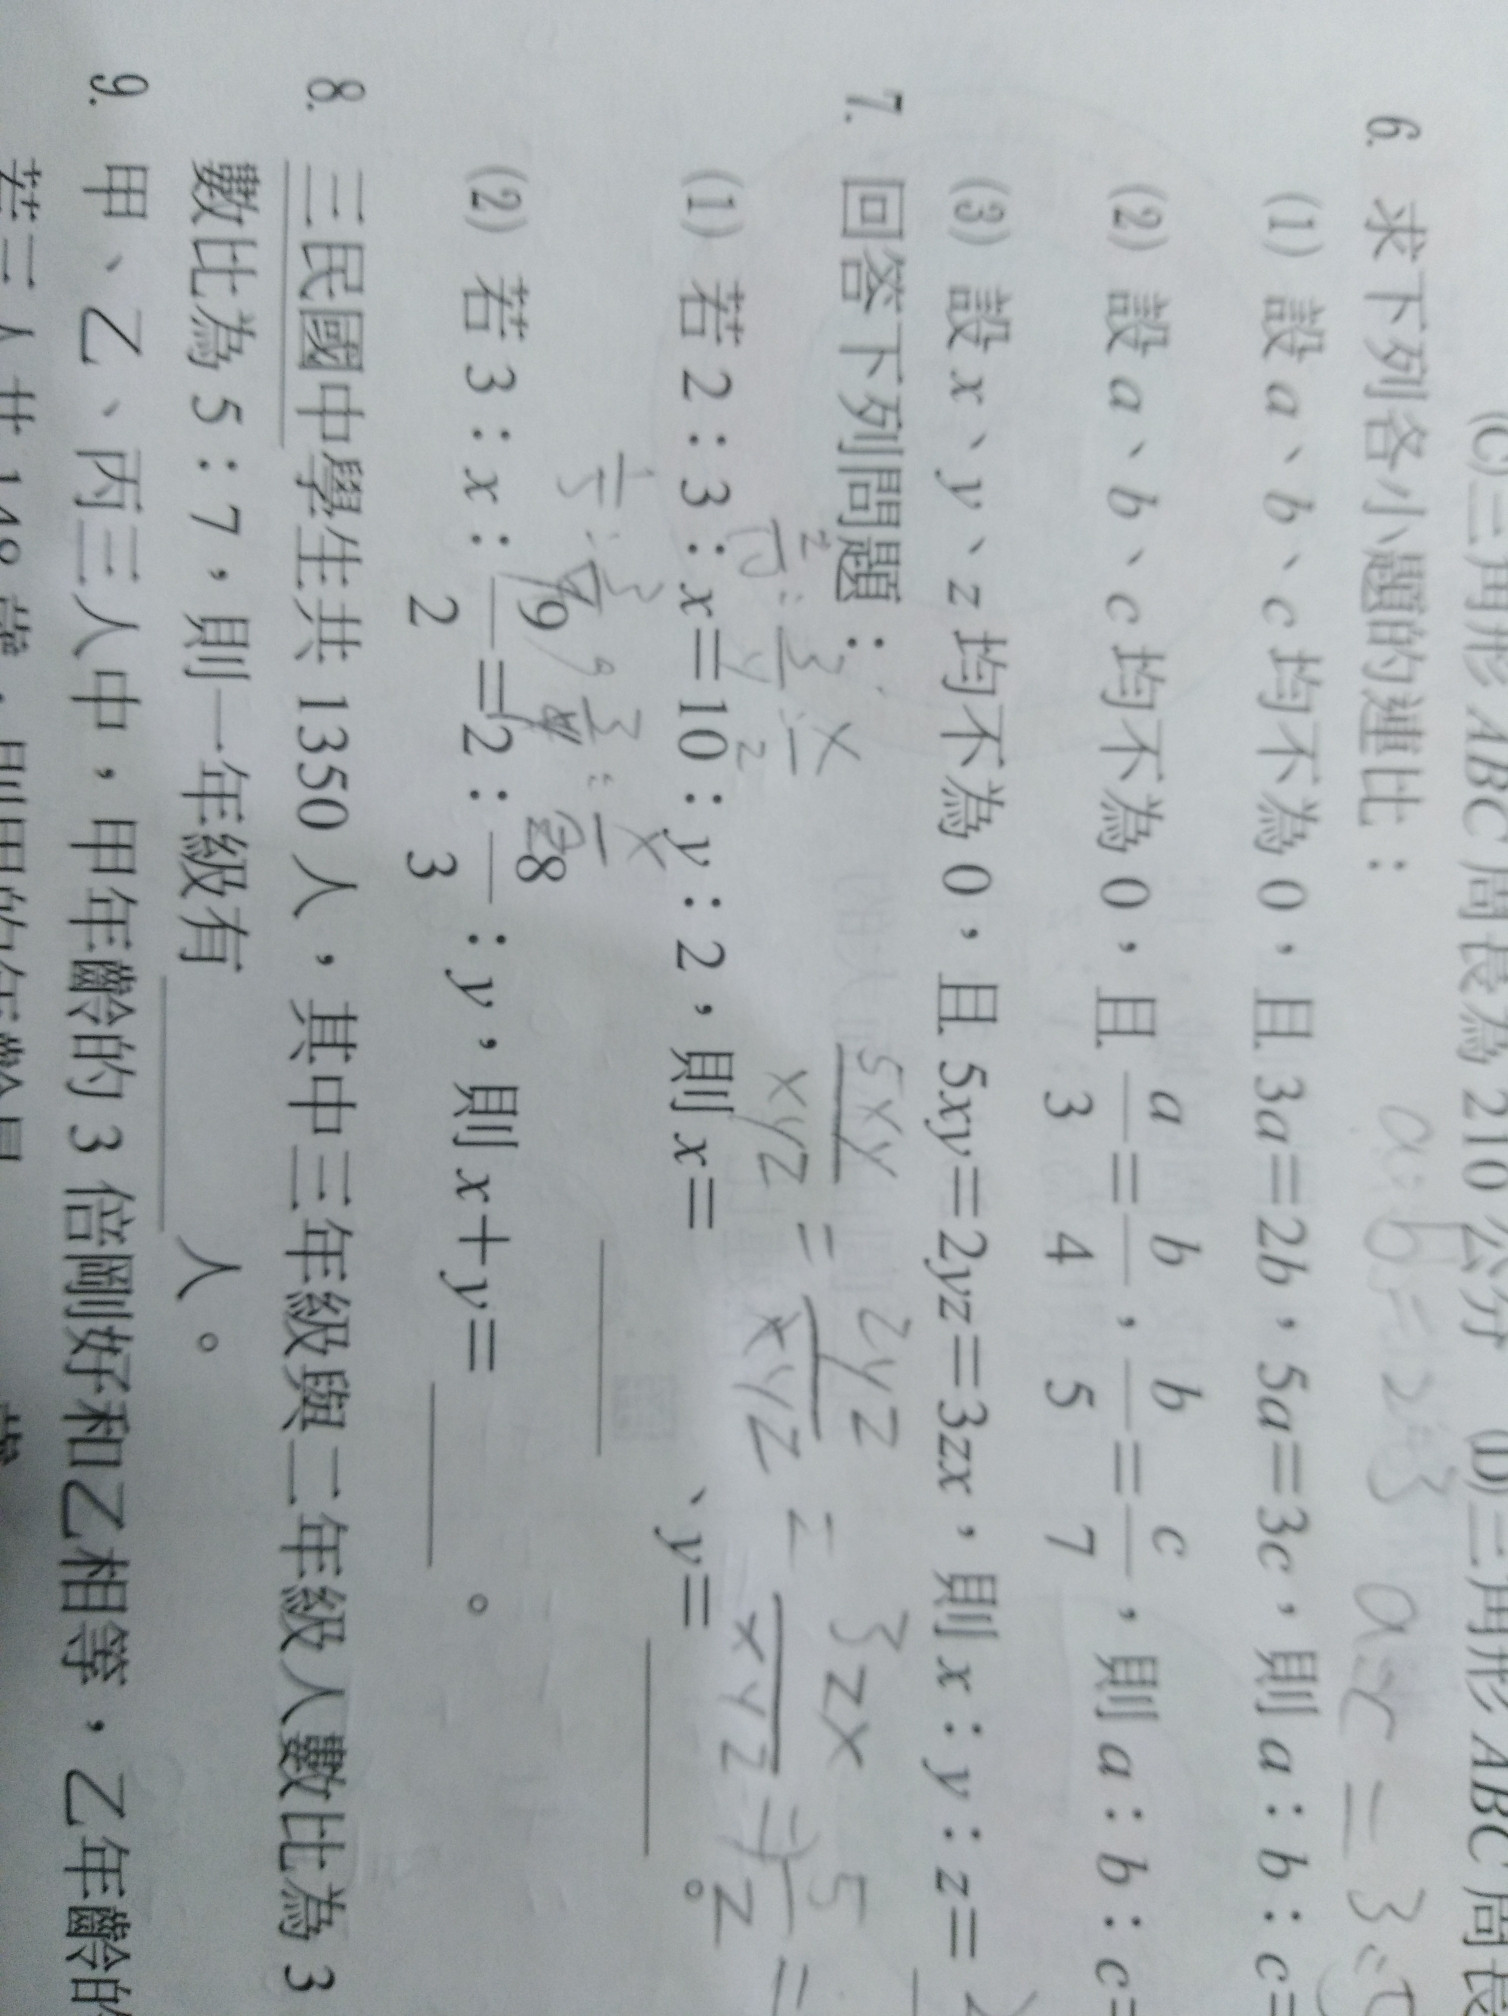 (C)三角形 ABC 周長為 210 公分 (D)三角形 ABC 周長
6. 求下列各小題的連比：
(1) 設 a、b、c 均不為 0，且 3a＝2b，5a＝3c，則 a：b：c＝
(2) 設 a、b、c 均不為 0，且 a/3＝b/4，b/5＝c/7，則 a：b：c＝
(3) 設 x、y、z 均不為 0，且 5xy＝2yz＝3zx，則 x：y：z＝
5xy/xyz = 2yz/xyz = 3zx/xyz ⇒ 5/z =
7. 回答下列問題：
(1) 若 2：3：x＝10：y：2，則 x＝ 、y＝ 。
(2) 若 3：x：9/2＝2：8/3：y，則 x＋y＝ 。
8. 三民國中學生共 1350 人，其中三年級與二年級人數比為 3
數比為 5：7，則一年級有 人。
9. 甲、乙、丙三人中，甲年齡的 3 倍剛好和乙相等，乙年齡的
若三人共 148 歲，則甲的年齡是 歲